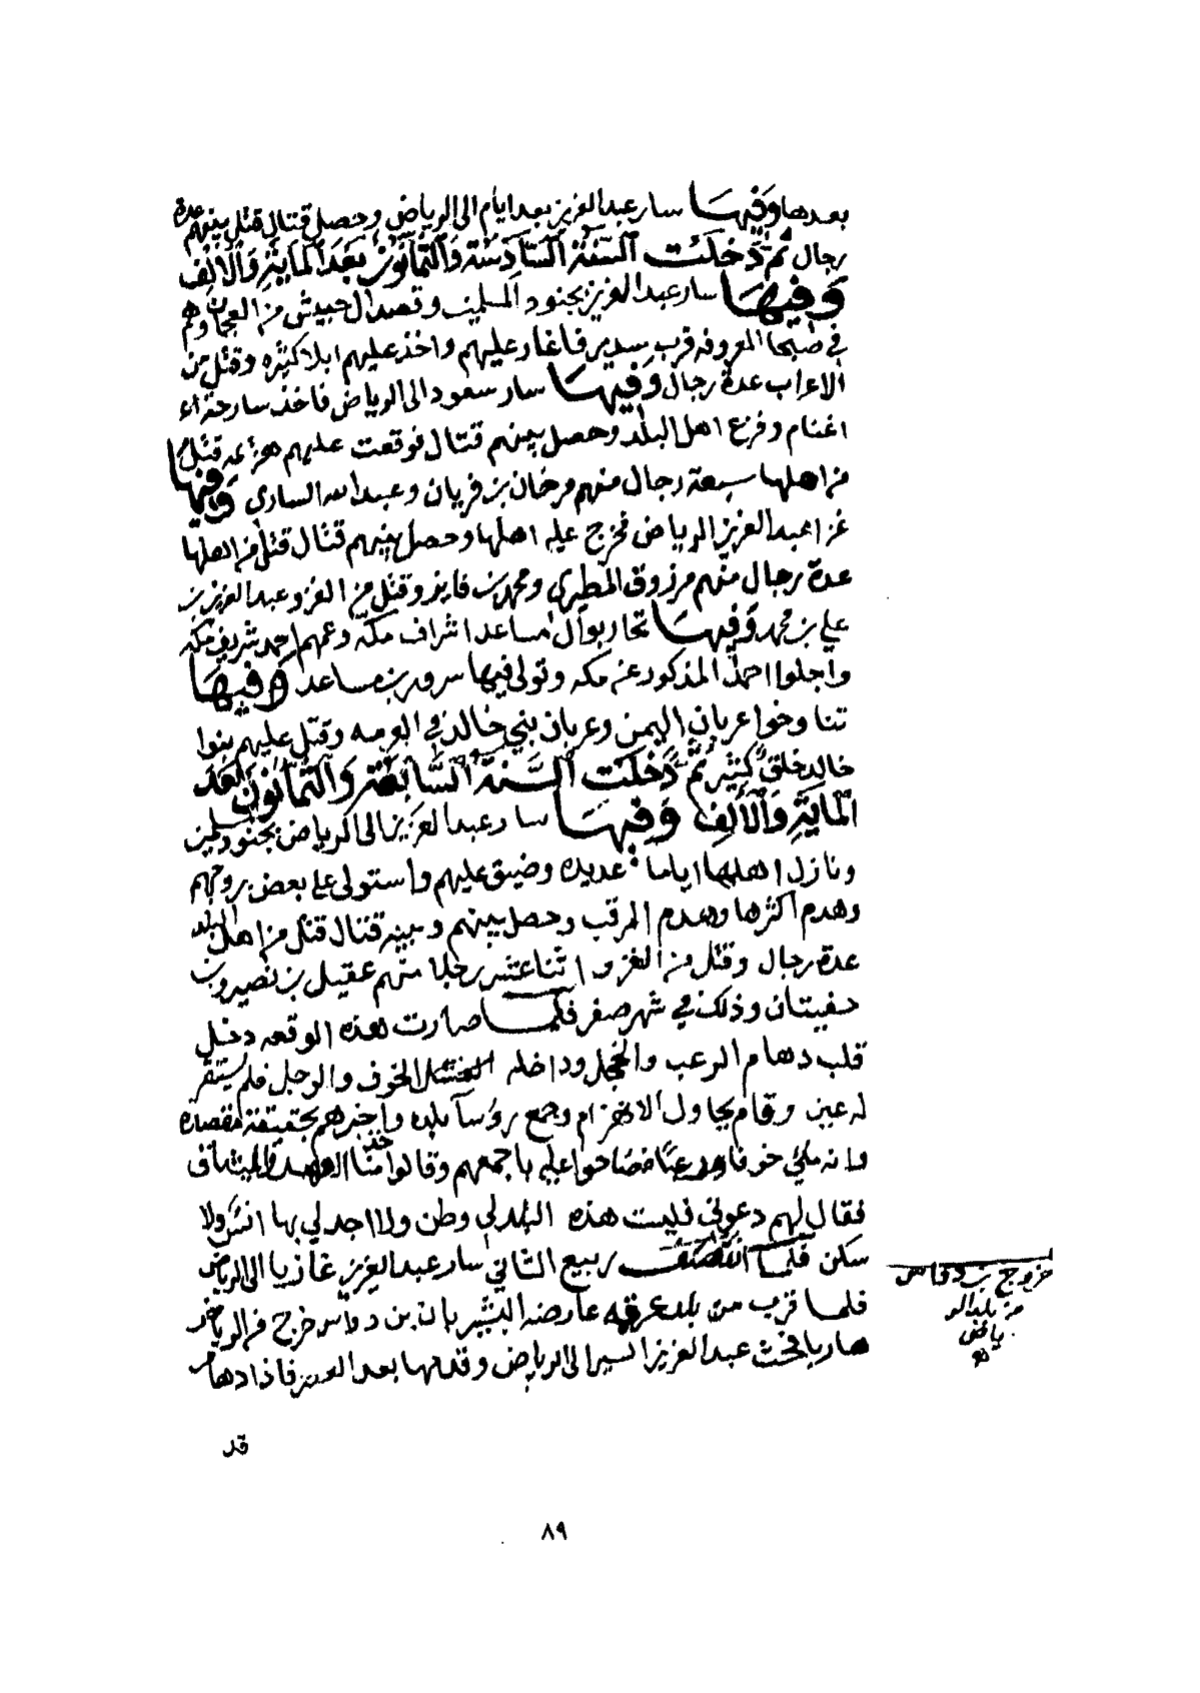 بعدها وَفِيهَا سار عبدالعزيز بعد ايام الى الرياض وحصل قتال قتل بينهم عدة
رجال ثم دَخَلَت السَّنَة السَّادِسَة وَالثَّمَانُون بَعْدَ المايَةِ وَالأَلِف
وَفِيهَا سار عبدالعزيز بجنود المسلمين وقصد ال حبيش من العجمان وهم
في صبحا المعروفه قرب سدير فاغار عليهم واخذ عليهم ابلا كثيره وقتل من
الاعراب عدة رجال وَفِيهَا سار سعود الى الرياض فاخذ سارحة
اغنام وفزع اهل البلد وحصل بينهم قتال فوقعت عليهم هزيمه قتل
من اهلها سبعة رجال منهم مرخان بن فريان وعبدالله الساري وَفِيهَا
غزا عبدالعزيز الرياض فخرج عليه اهلها وحصل بينهم قتال قتل من اهلها
عدة رجال منهم مرزوق المطيري ومحمد بن فايز وقتل من الغزو عبدالعزيز بن
علي بن محمد وَفِيهَا تحاربوا ال مساعد اشراف مكة وعمهم احمد شريف مكه
واجلوا احمد المذكور عن مكه وتولى فيها سرور بن مساعد وَفِيهَا
تناوخوا عربان اليمن وعربان بني خالد في وقتل عليهم بنوا
خالد خلق كثير ثُمَّ دَخَلَت السَّنَة السَّابِعَة وَالثَّمَانُون بَعْدَ
المَايَةِ وَالأَلِف وَفِيهَا سار عبدالعزيز الى الرياض بجنود المسلمين
ونازل اهلها اياما عديده وضيق عليهم واستولى على بعض بروجهم
وهدم اكثرها وهدم المرقب وحصل بينهم وبينه قتال قتل من اهل البلد
عدة رجال وقتل من الغزو اثنا عشر رجلا منهم عقيل بن نصير وبن
حفيتان وذلك في شهر صفر فلما صارت هذه الوقعه دخل
قلب دهام الرعب والخجل وداخله الفشل الخوف والوجل فلم يستقر
له عين وقام يحاول الانهزام وجمع رؤسآ بلده واخبرهم بحقيقة مقصاده
وانه ملي خوفا ورعبا فصاحوا عليه باجمعهم وقالوا خذ منا العهد والميثاق
فقال لهم دعوني فليت هذه البلد لي وطن ولا اجد لي بها انس ولا
سكن فلما انتصف ربيع الثاني سار عبدالعزيز غازيا الى الرياض
فلما قرب من بلد عرقه عارضه البشير بان بن دواس خرج من الرياض
هاربا فحث عبدالعزيز السير الى الرياض وقدمها بعد العصر فاذا دهام
خروج بن دواس
من بلد الر
ياض
قد
٨٩